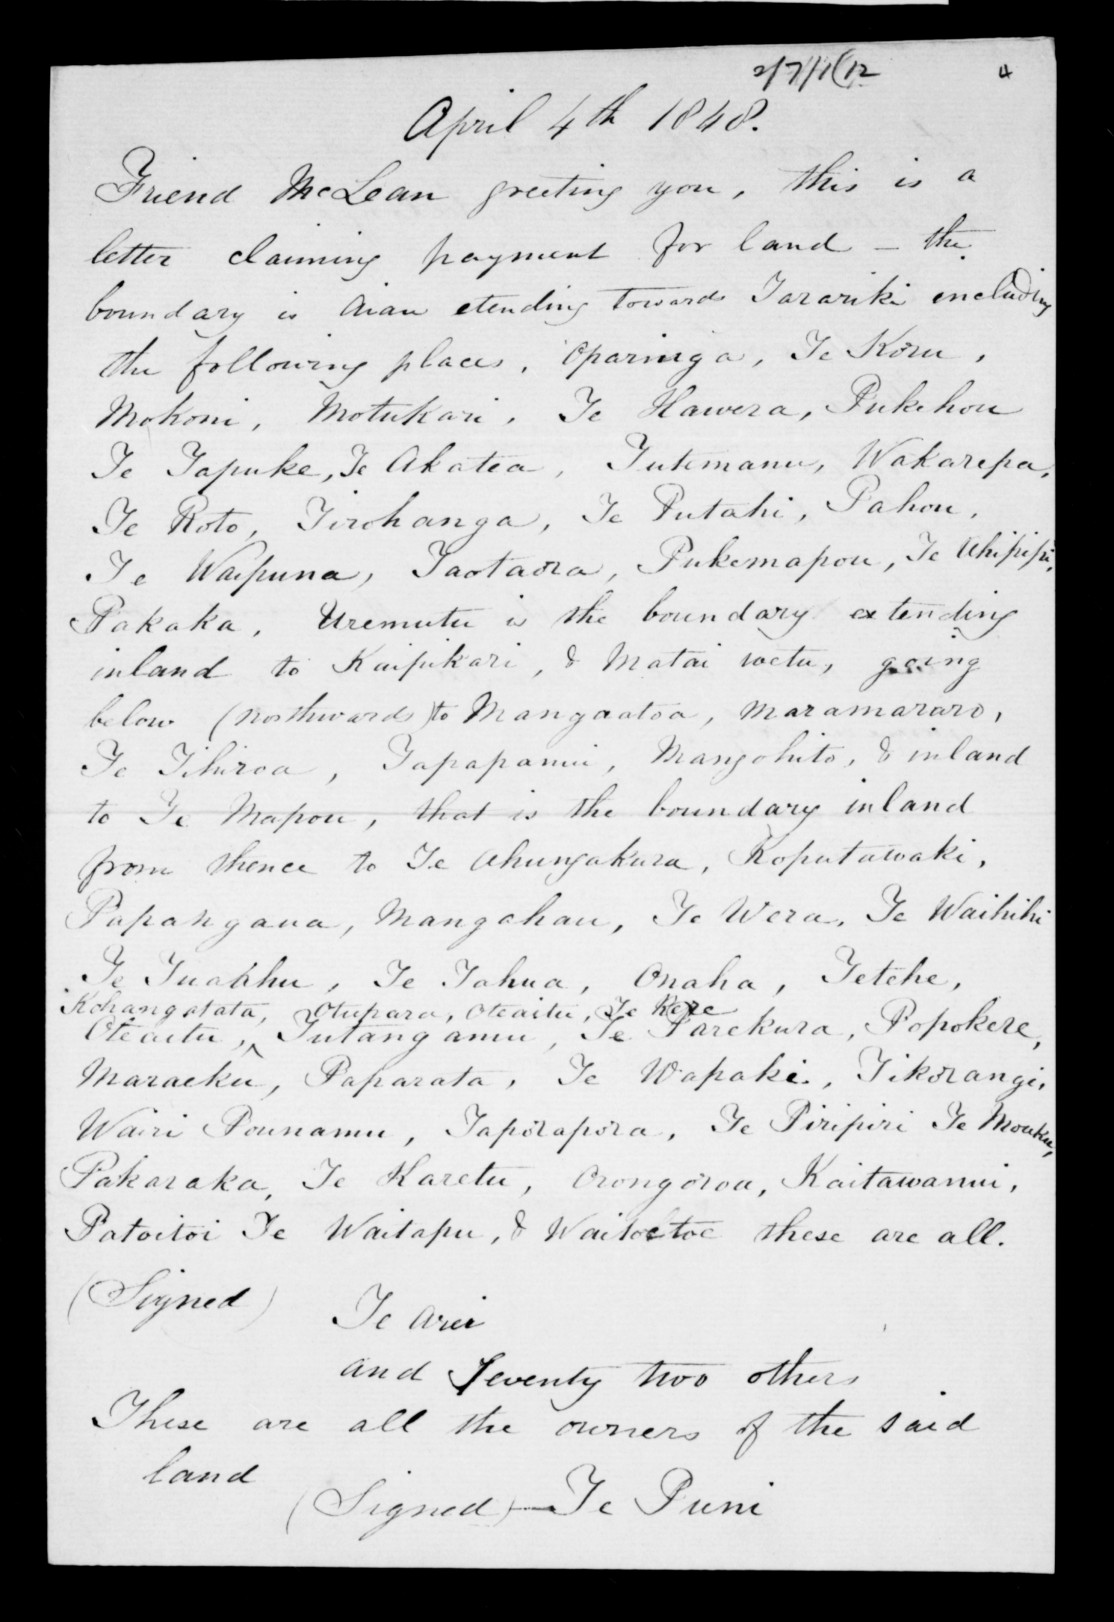 2/7/1(12 4
April 4th 1848.
Friend McLean greeting you, this is a
letter claiming payment for land - the
boundary is Aiau etending towards Tarariki including
the following places, Oparinga, Te Koru,
Mokoni, Motukari, Te Hawera, Pukehou
Te Tapuke, Te Akatea, Tutemanu, Wakarepa,
Te Roto, Tirohanga, Te Putahi, Pahou,
Te Waipuna, Taotaora, Pukemapou, Te Uhipipi,
Pakaka, Uremutu is the boundary extending
inland to Kaipikari, & Matai woetu, going
below (northwards) to Mangaatoa, Maramararo,
Te Tihiroa, Tapapanui, Mangohito, & inland
to Te Mapou, that is the boundary inland
from thence to Te Ahungakura, Koputawaki,
Papangaua, Mangahau, Te Wera, Te Waihihi
Te Tuahhu, Te Tahua, Onaha, Tetehe,
Kohangatata, Otupara, Oteaitu, Te Kere
Oteaitu, Tutangamu, Te Parekura, Popokere,
Maraeku, Paparata, Te Wapaki, Tikorangi,
Wairi Pounamu, Taporapora, Te Piripiri Te Mouku,
Pakaraka, Te Karetu, Orongorou, Kaitawanui,
Patoitoi Te Waitapu, & Waitoetoe these are all.
(Signed) Te Arei
and Seventy two others
These are all the owners of the said
land
(Signed) — Te Puni